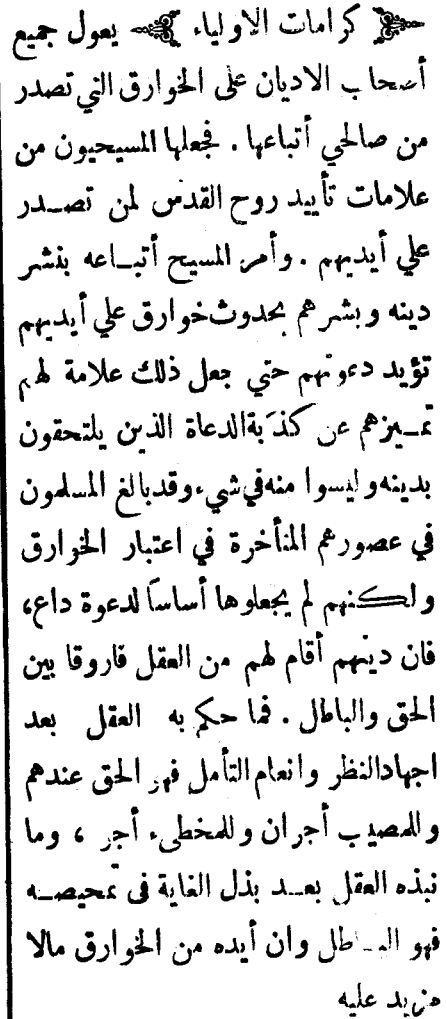 كرامات الاولياء يعول جميع
أصحاب الاديان على الخوارق التي تصدر
من صالحي أتباعها . فجعلها المسيحيون من
علامات تأييد روح القدس لمن تصدر
علي أيديهم . وأمر المسيح أتباعه بنشر
دينه وبشرهم بحدوث خوارق علي أيديهم
تؤيد دعوتهم حتي جعل ذلك علامة لهم
تميزهم عن كذبة الدعاة الذين يلتحقون
بدينه وليسوا منه في شيء وقد بالغ المسلمون
في عصورهم المتأخرة في اعتبار الخوارق
ولكنهم لم يجعلوها أساسا لدعوة داع ،
فان دينهم أقام لهم من العقل فاروقا بين
الحق والباطل . فما حكم به العقل بعد
اجهاد النظر وانعام التأمل فهو الحق عندهم
وللمصيب أجران وللمخطيء أجر ، وما
نبذه العقل بعد بذل الغاية في تمحيصه
فهو الباطل وان أيده من الخوارق مالا
مزيد عليه